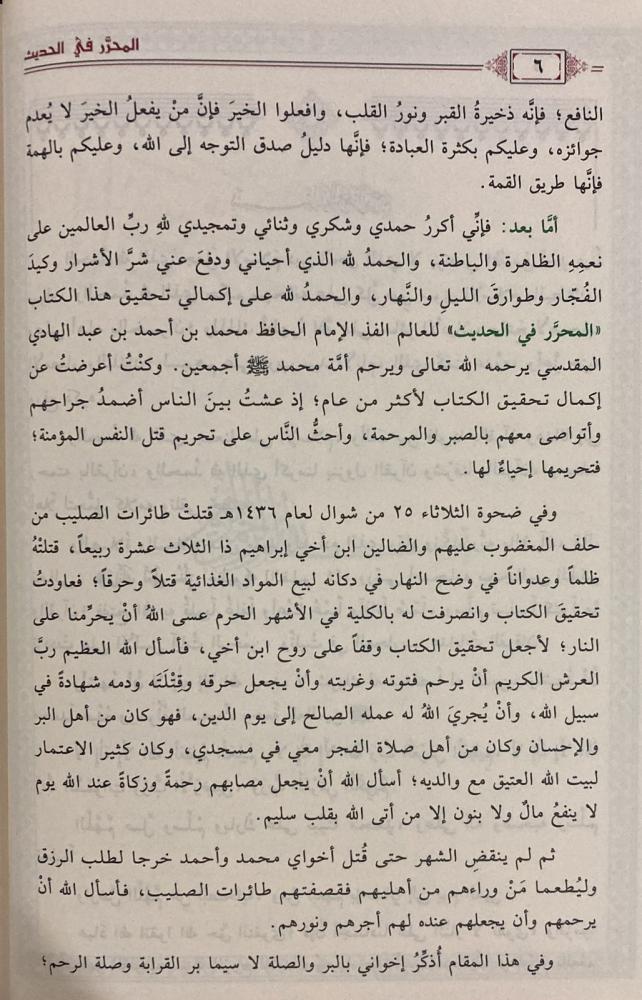 المحرَّر في الحديث
٦
النافع؛ فإنَّه ذخيرةُ القبر ونورُ القلب، وافعلوا الخيرَ فإنَّ منْ يفعلُ الخيرَ لا يُعدم
جوائزه، وعليكم بكثرة العبادة؛ فإنَّها دليلُ صدق التوجه إلى الله، وعليكم بالهمة
فإنَّها طريق القمة.
أمَّا بعد: فإنِّي أكررُ حمدي وشكري وثنائي وتمجيدي للهِ ربِّ العالمين على
نعمِهِ الظاهرة والباطنة، والحمدُ لله الذي أحياني ودفعَ عني شرَّ الأشرار وكيدَ
الفُجّار وطوارقَ الليلِ والنَّهار، والحمدُ لله على إكمالي تحقيق هذا الكتاب
«المحرَّر في الحديث» للعالم الفذ الإمام الحافظ محمد بن أحمد بن عبد الهادي
المقدسي يرحمه الله تعالى ويرحم أمَّة محمد ﷺ أجمعين. وكنْتُ أعرضتُ عن
إكمال تحقيق الكتاب لأكثر من عام؛ إذ عشتُ بينَ الناس أضمدُ جراحهم
وأتواصى معهم بالصبر والمرحمة، وأحثُّ النَّاس على تحريم قتل النفس المؤمنة؛
فتحريمها إحياءٌ لها.
وفي ضحوة الثلاثاء ٢٥ من شوال لعام ١٤٣٦هـ قتلتْ طائرات الصليب من
حلف المغضوب عليهم والضالين ابن أخي إبراهيم ذا الثلاث عشرة ربيعاً، قتلتْهُ
ظلماً وعدواناً في وضح النهار في دكانه لبيع المواد الغذائية قتلاً وحرقاً؛ فعاودتُ
تحقيقَ الكتاب وانصرفت له بالكلية في الأشهر الحرم عسى اللهُ أنْ يحرِّمنا على
النار؛ لأجعل تحقيق الكتاب وقفاً على روح ابن أخي، فأسأل الله العظيم ربَّ
العرش الكريم أنْ يرحم فتوته وغربته وأنْ يجعل حرقه وقِتْلَتَه ودمه شهادةً في
سبيل الله، وأنْ يُجريَ اللهُ له عمله الصالح إلى يوم الدين، فهو كان من أهل البر
والإحسان وكان من أهل صلاة الفجر معي في مسجدي، وكان كثير الاعتمار
لبيت الله العتيق مع والديه؛ أسأل الله أنْ يجعل مصابهم رحمةً وزكاةً عند الله يوم
لا ينفعُ مالٌ ولا بنون إلا من أتى الله بقلب سليم.
ثم لم ينقضِ الشهر حتى قُتل أخواي محمد وأحمد خرجا لطلب الرزق
وليُطعما مَنْ وراءهم من أهليهم فقصفتهم طائرات الصليب، فأسأل الله أنْ
يرحمهم وأن يجعلهم عنده لهم أجرهم ونورهم.
وفي هذا المقام أُذكِّرُ إخواني بالبر والصلة لا سيما بر القرابة وصلة الرحم؛